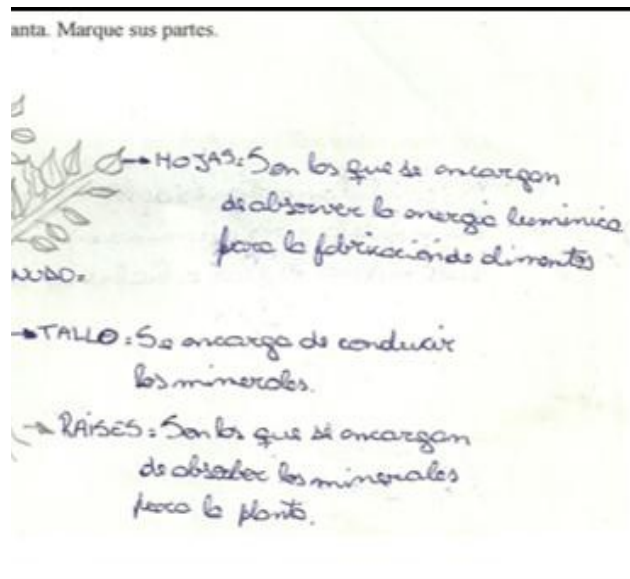 anta. Marque sus partes.
HOJAS: Son los que se encargan
de absorver la energia leminica
para la fabricacion de alimentos
NUDO=
TALLO: Se encarga de conducir
los minerales.
RAISES: Son los que se encargan
de absorber los minerales
para la planta.